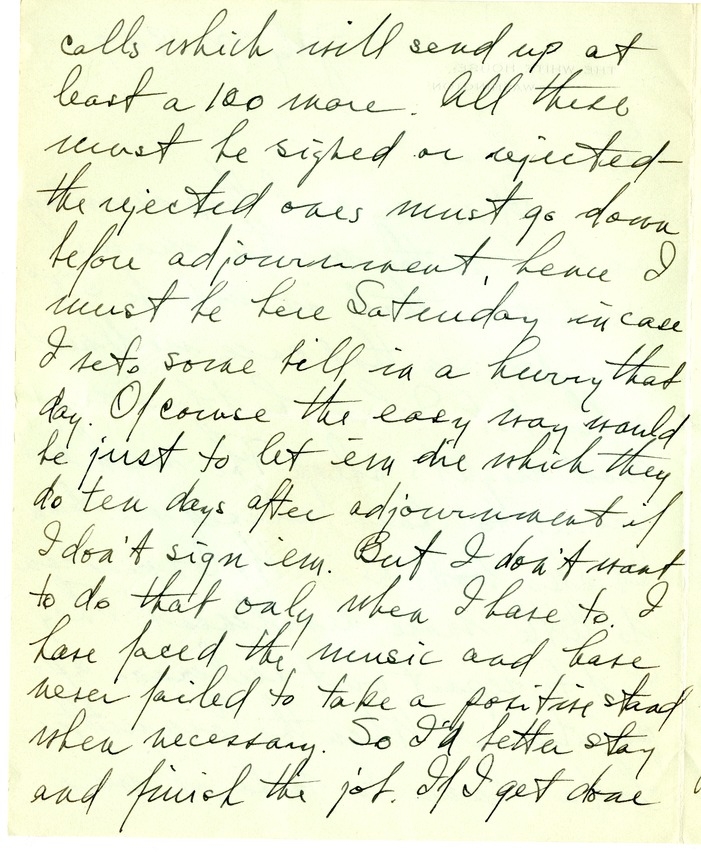 calls which will send up at
least a 100 more. All these
must be signed or rejected—
the rejected ones must go down
before adjournment, hence I
must be here Saturday in case
I veto some bill in a hurry that
day. Of course the easy way would
be just to let 'em die which they
do ten days after adjournment if
I don't sign 'em. But I don't want
to do that only when I have to. I
have faced the music and have
never failed to take a positive stand
when necessary. So I'd better stay
and finish the job. If I get done